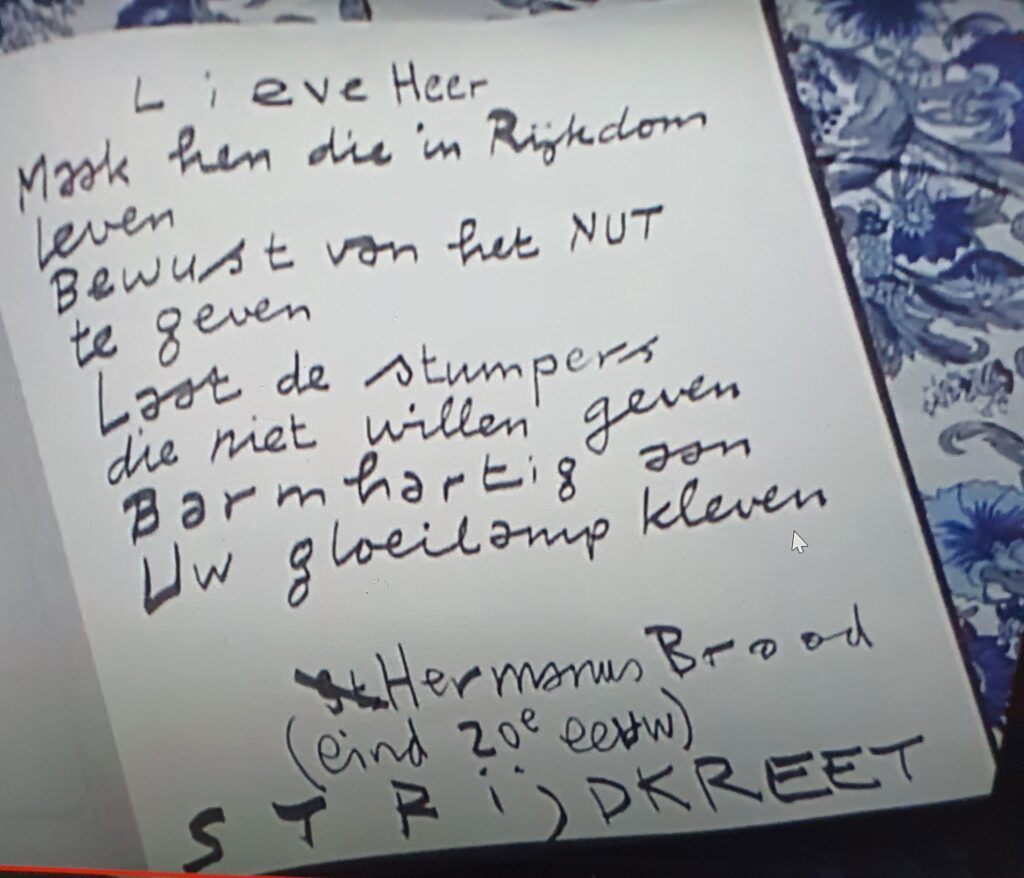 Lieve Heer
Maak hen die in Rijkdom
leven
Bewust van het NUT
te geven
Laat de stumpers
die niet willen geven
Barmhartig aan
Uw gloeilamp kleven
Hermanus Brood
(eind 20e eeuw)
STRijDKREET